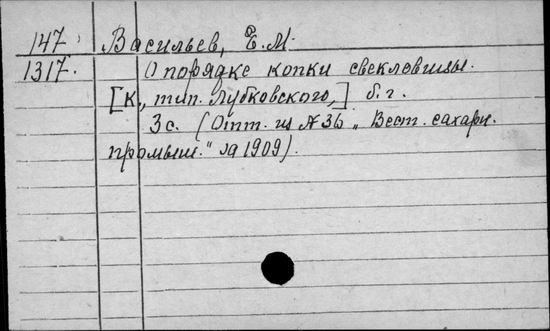 147 Васильев, Е.М.
1317. О порядке копки свекловицы.
[К., тип. Лубковского,] б.г.
3 с. (Отт. из №36 „Вест. сахарн.
промышл." за 1909).